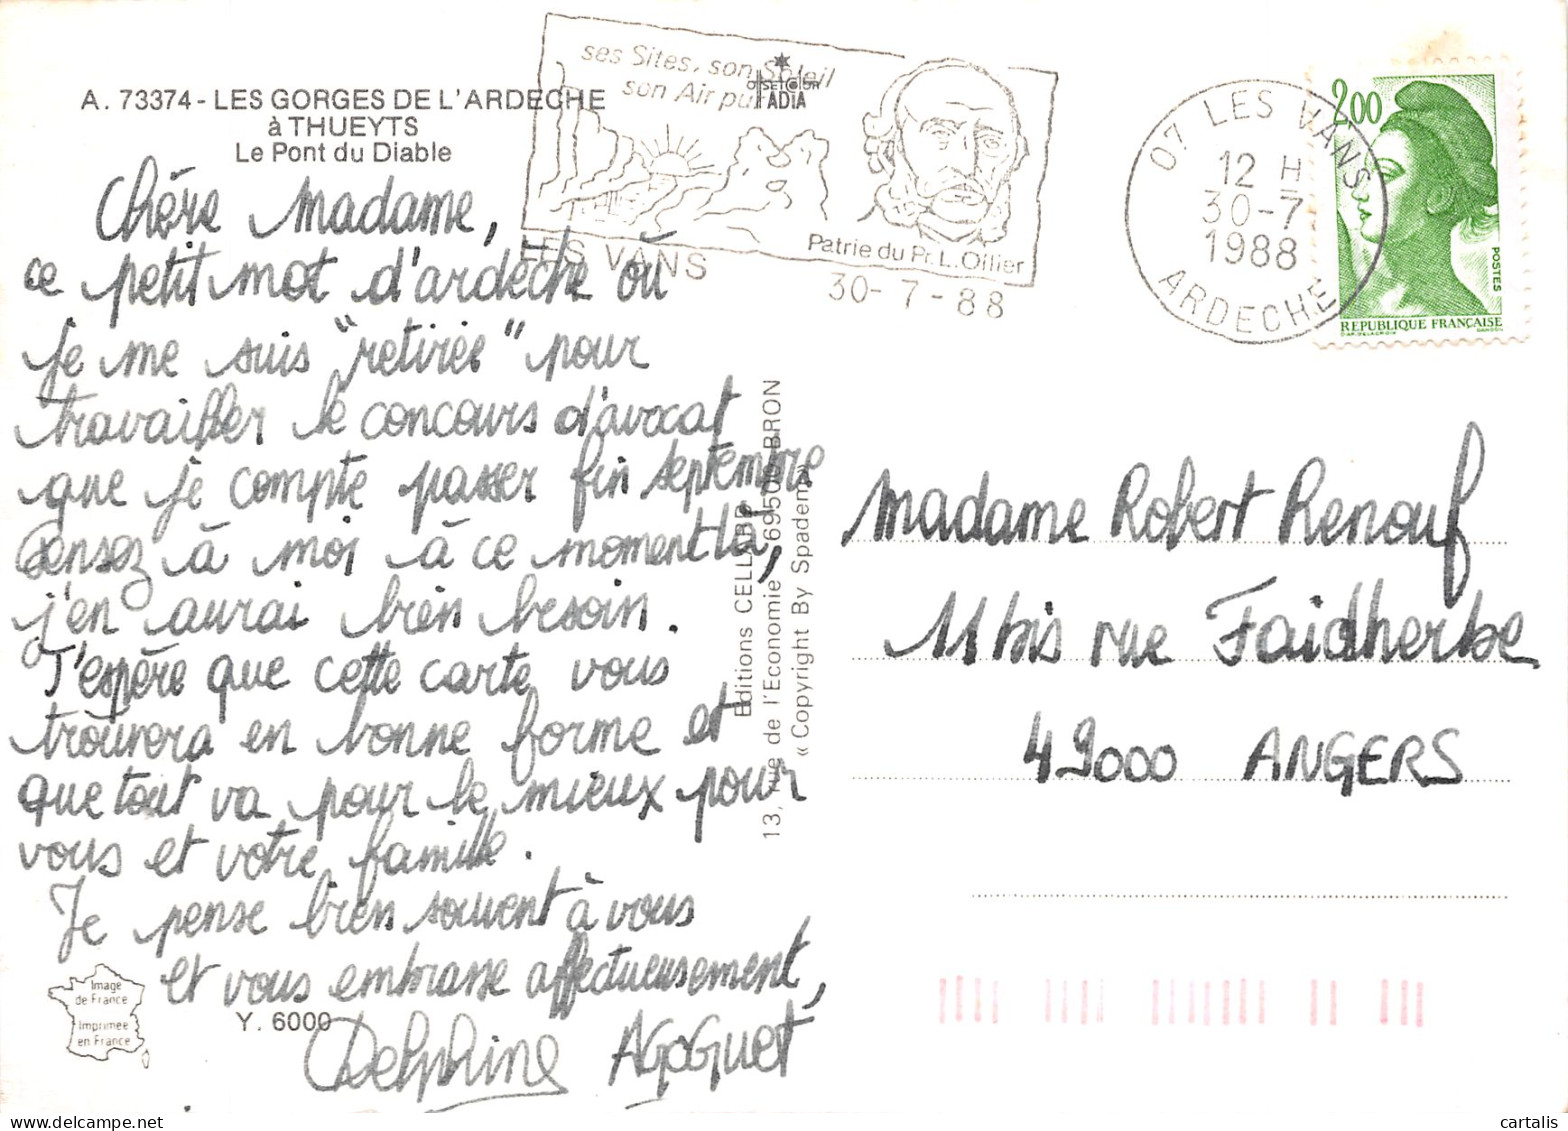 A. 73374 - LES GORGES DE L'ARDECHE
à THUEYTS
Le Pont du Diable
ses Sites, son Soleil
son Air pur
LES VANS
Patrie du Pr. L. Ollier
30-7-88
07 LES VANS
12 H
30-7
1988
ARDECHE
2,00
POSTES
REPUBLIQUE FRANÇAISE
Chère Madame,
ce petit mot d'ardèche où
je me suis "retirée" pour
travailler le concours d'avocat
que je compte passer fin septembre
Pensez à moi à ce moment là,
j'en aurai bien besoin.
J'espère que cette carte vous
trouvera en bonne forme et
que tout va pour le mieux pour
vous et votre famille.
Je pense bien souvent à vous
et vous embrasse affectueusement,
Delphine
Editions CELLARD
13, rue de l'Economie 69500 BRON
« Copyright By Spadem »
Madame Robert Renouf
11 bis rue Faidherbe
49000 ANGERS
Image
de France
Imprimée
en France
Y. 6000
cartalis